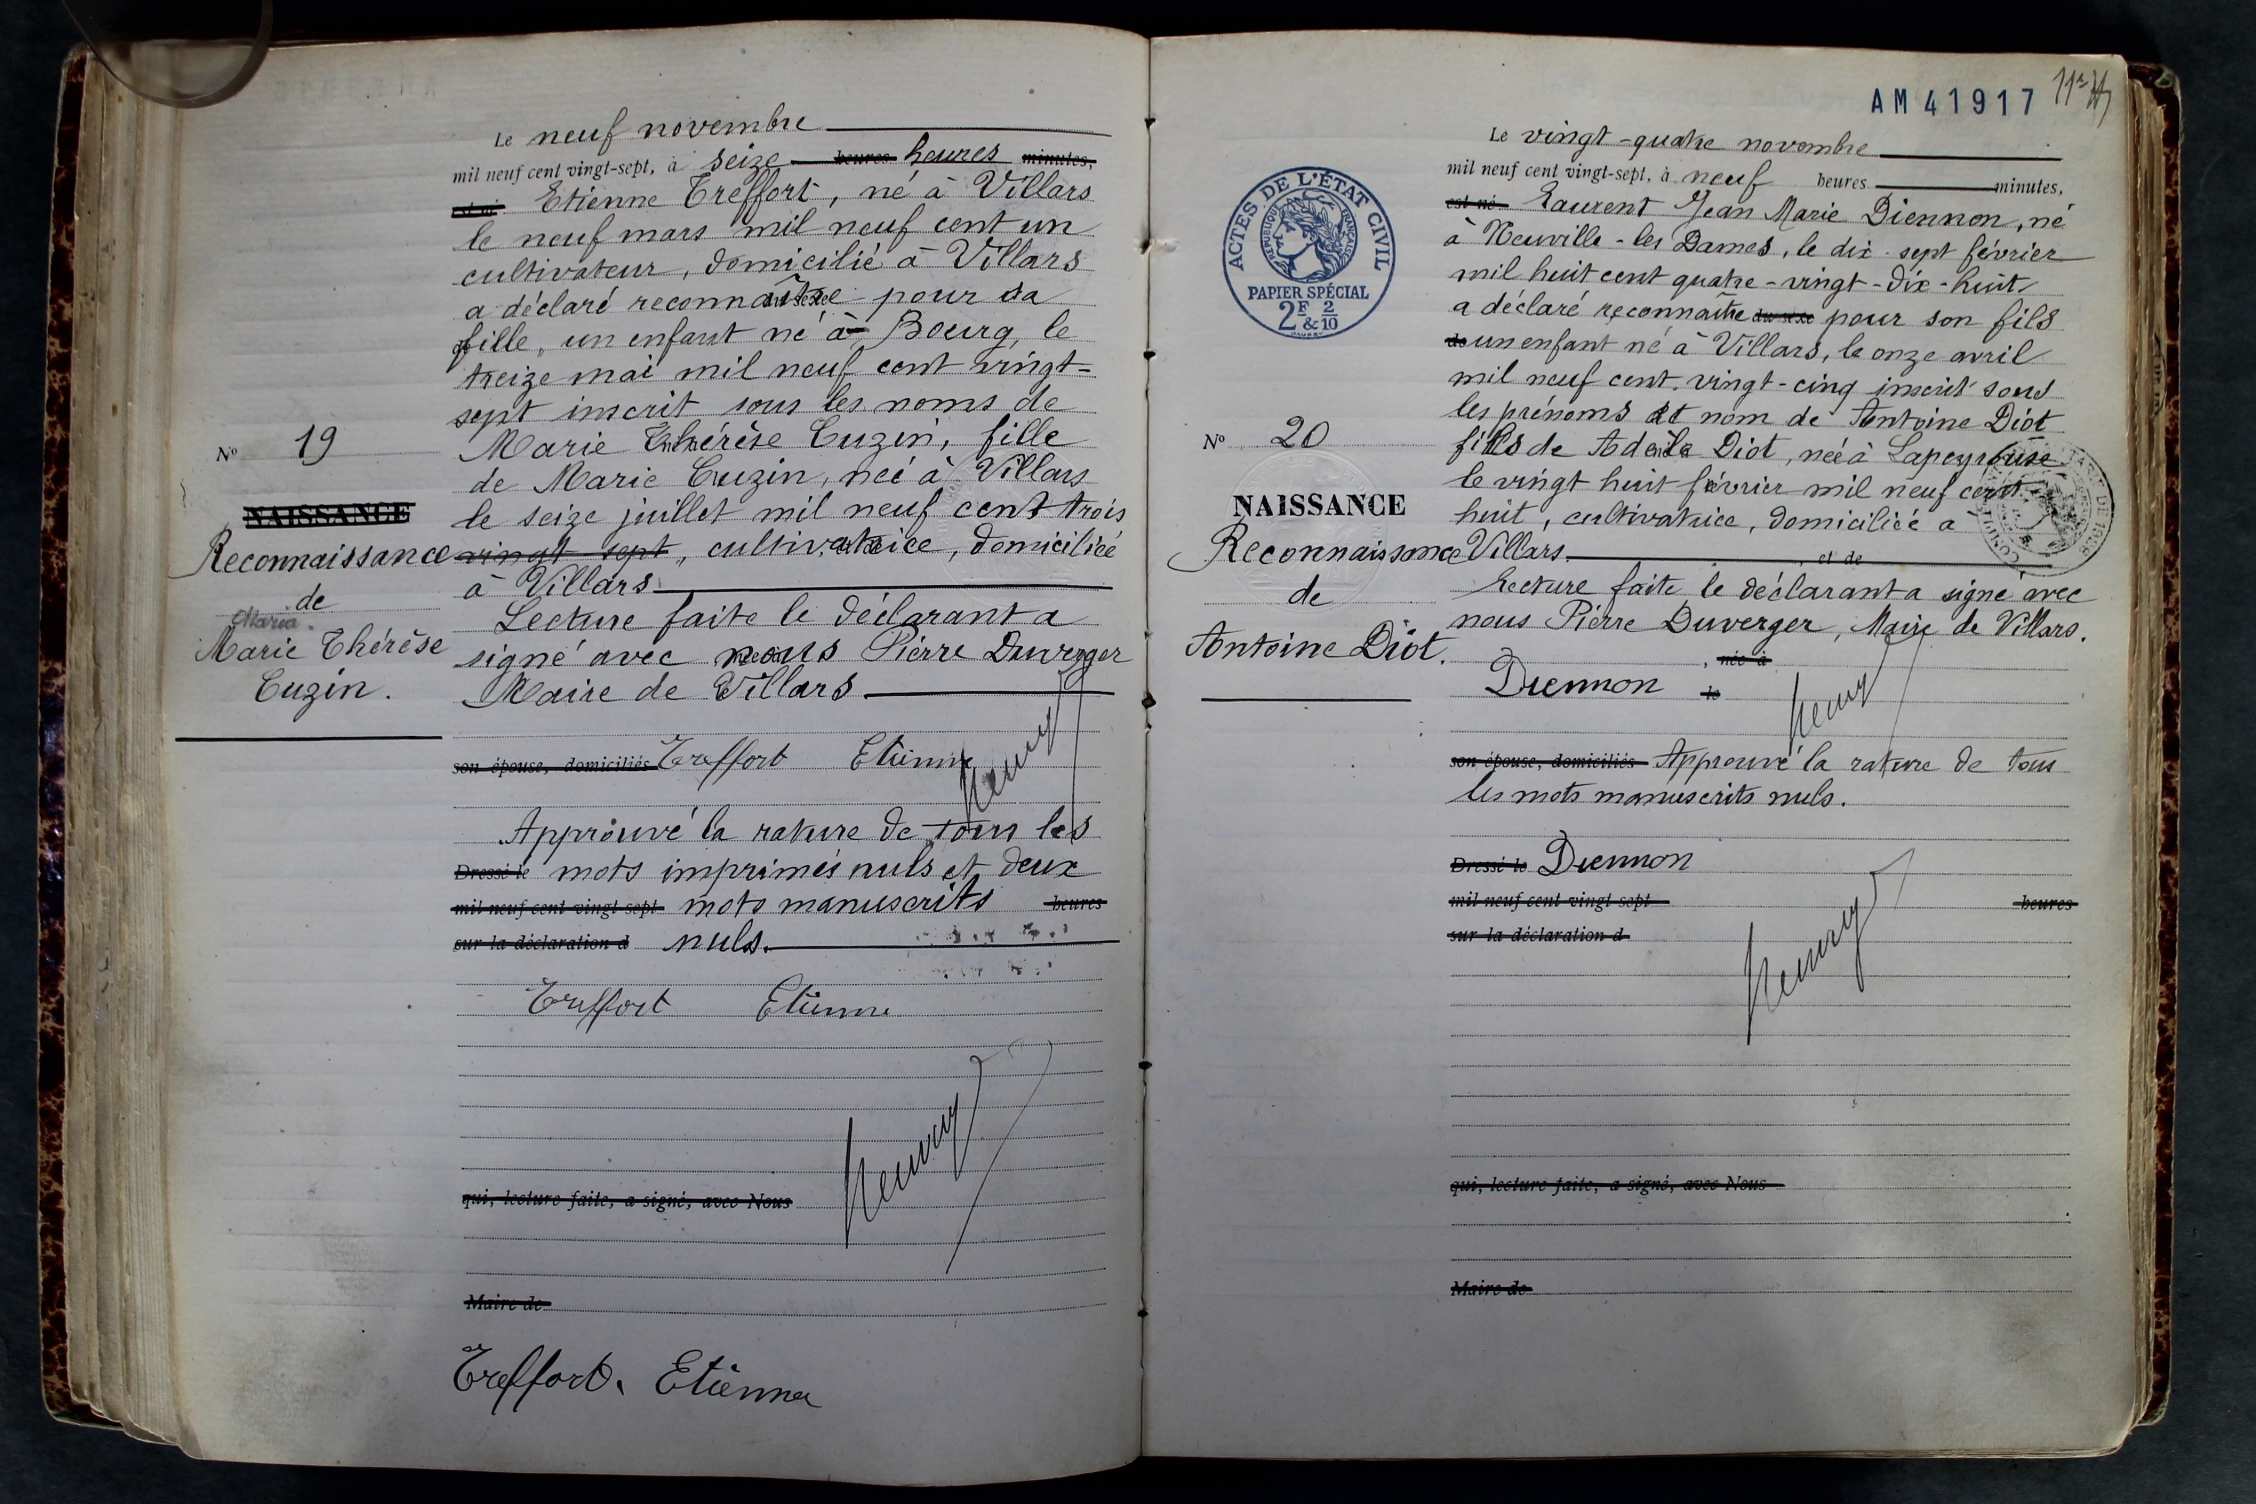 Le neuf novembre
mil neuf cent vingt-sept, à seize heures heures minutes,
est né Etienne Treffort, né à Villars
le neuf mars mil neuf cent un
cultivateur, domicilié à Villars
a déclaré reconnaître pour sa
fille, un enfant né à Bourg, le
treize mai mil neuf cent vingt-
sept inscrit sous les noms de
Marie Thérèse Cuzin, fille
de Marie Cuzin, née à Villars
le seize juillet mil neuf cent trois
vingt sept, cultivatrice, domiciliée
à Villars
Lecture faite le déclarant a
signé avec nous Pierre Duverger
Maire de Villars
son épouse, domiciliés Treffort Etienne
Approuvé la rature de tous les
Dressé le mots imprimés nuls et deux
mil neuf cent vingt-sept mots manuscrits heures
sur la déclaration d nuls.
Treffort Etienne
qui, lecture faite, a signé, avec Nous
Maire de
Treffort Etienne
No 19
NAISSANCE
Reconnaissance
de
Maria
Marie Thérèse
Cuzin.
AM 41917
Le vingt-quatre novembre
mil neuf cent vingt-sept, à neuf heures minutes,
est né Laurent Jean Marie Diennon, né
à Neuville-les Dames, le dix-sept février
mil huit cent quatre-vingt-dix-huit
a déclaré reconnaître du sexe pour son fils
de un enfant né à Villars, le onze avril
mil neuf cent vingt-cinq inscrit sous
les prénoms et nom de Antoine Diot
fils de Adèle Diot, née à Lapeyrouse
le vingt huit février mil neuf cent
huit, cultivatrice, domiciliée a
Villars et de
Lecture faite le déclarant a signé avec
nous Pierre Duverger, Maire de Villars.
, née à
Diennon le
son épouse, domiciliés Approuvé la rature de tous
les mots manuscrits nuls.
Dressé le Diennon
mil neuf cent vingt-sept heures
sur la déclaration d
qui, lecture faite, a signé, avec Nous
Maire de
ACTES DE L'ÉTAT CIVIL
RÉPUBLIQUE FRANÇAISE
PAPIER SPÉCIAL
2F & 2/10
No 20
NAISSANCE
Reconnaissance
de
Antoine Diot.